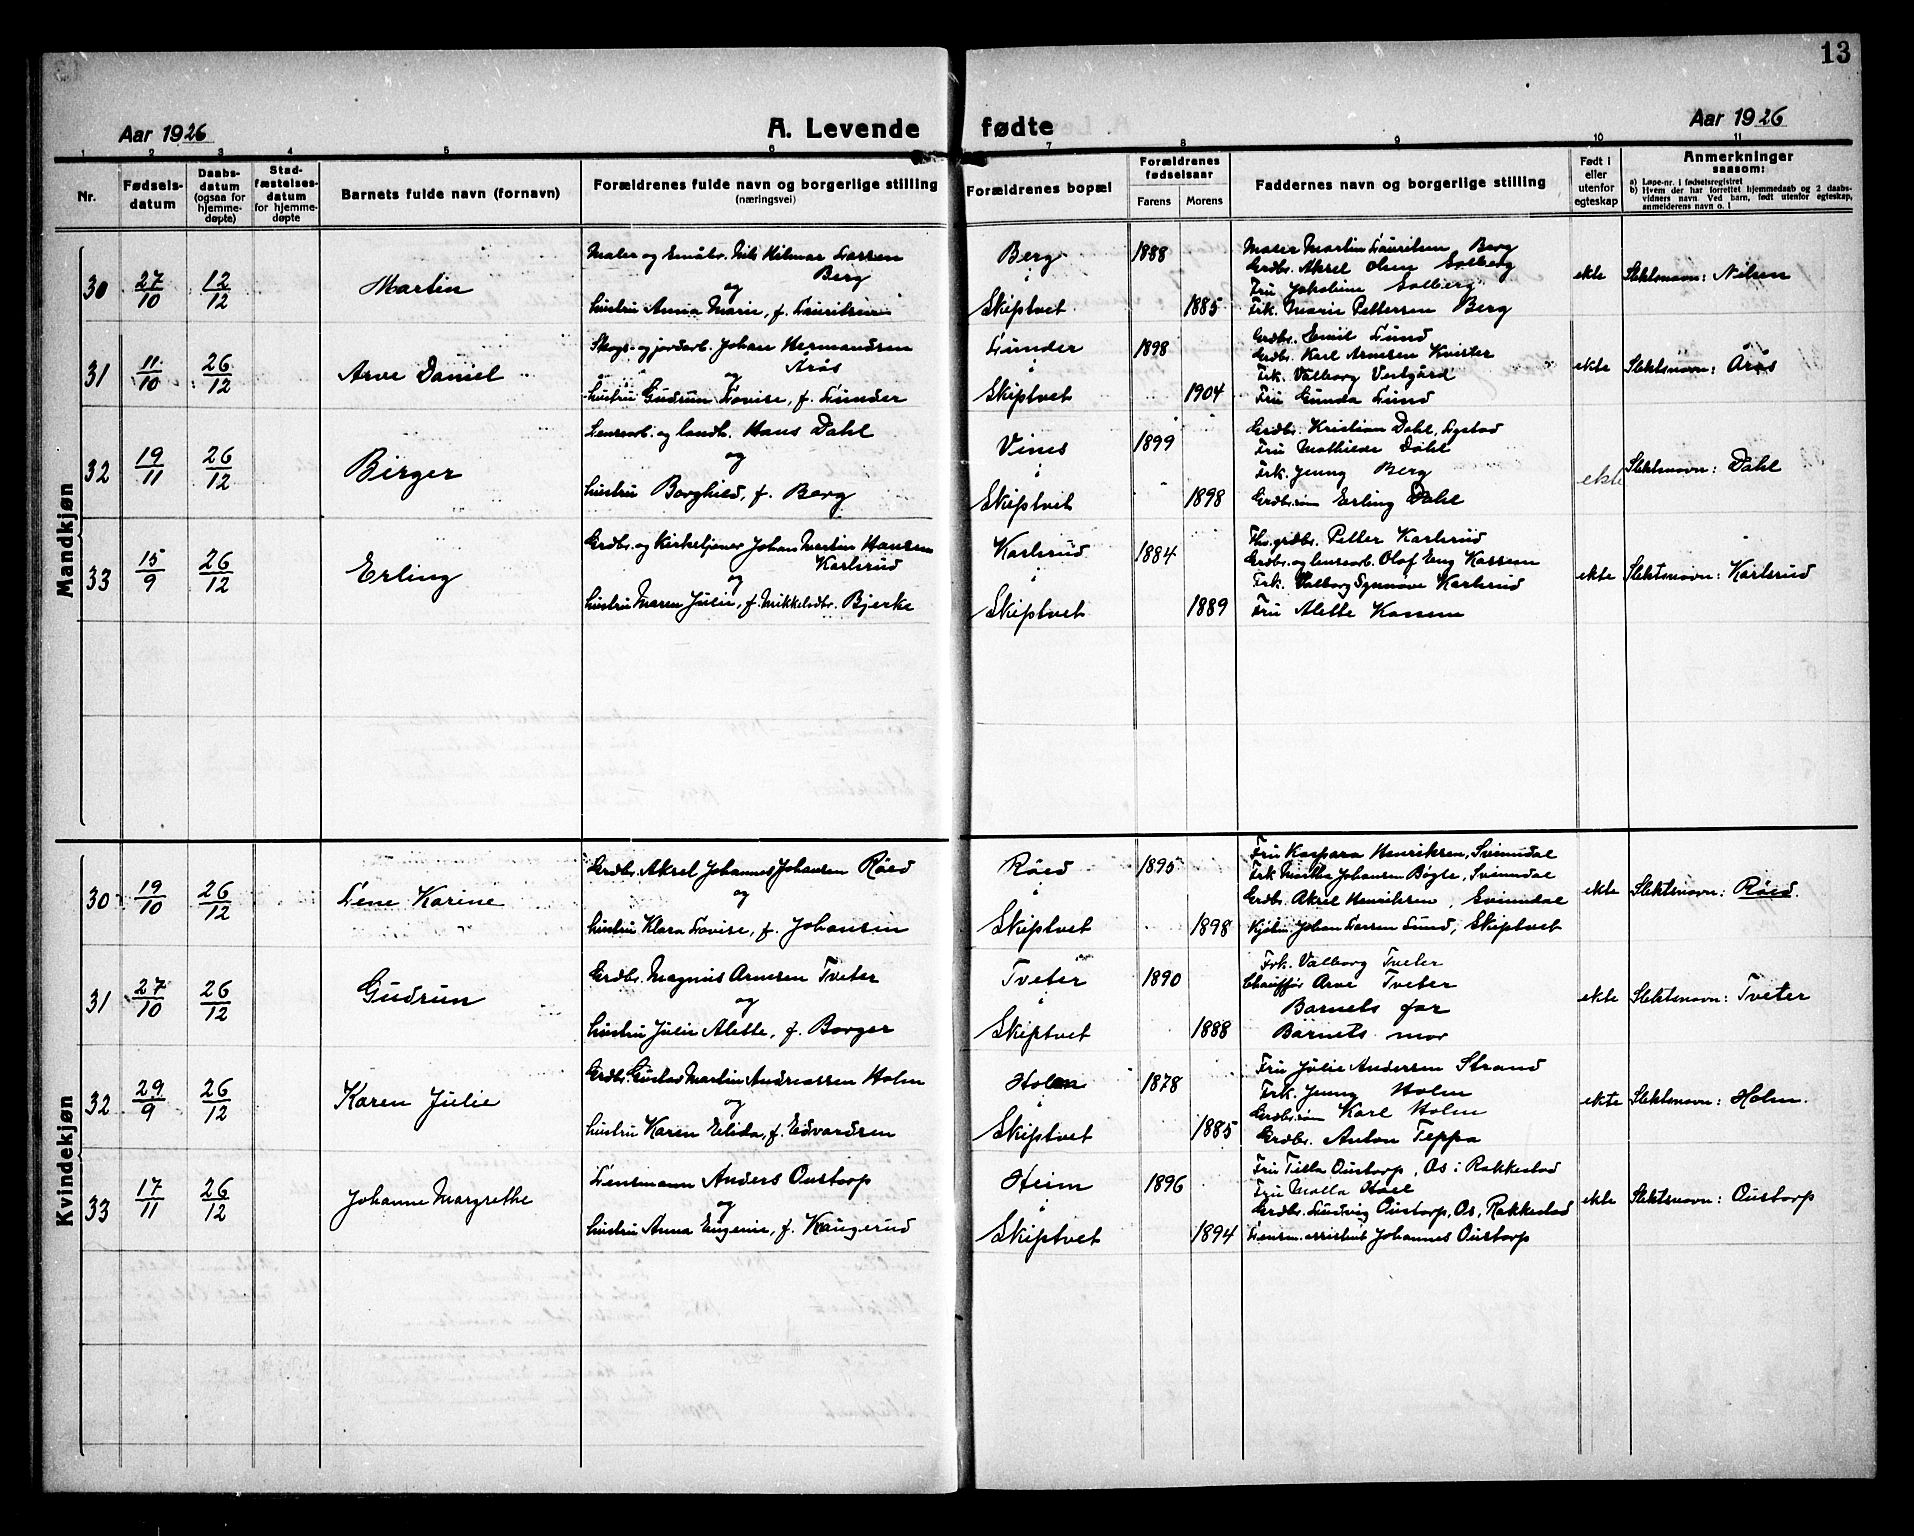 13
Aar 1926
A. Levende fødte
Aar 1926
1 2 3 4 5 6 7 8 9 10 11
Nr.
Fødsels-
datum
Daabs-
datum
(ogsaa for
hjemme-
døpte)
Stad-
fæstelses-
datum
for hjemme-
døpte
Barnets fulde navn (fornavn)
Forældrenes fulde navn og borgerlige stilling
(næringsvei)
Forældrenes bopæl
Forældrenes
fødselsaar
Farens Morens
Faddernes navn og borgerlige stilling
Født i
eller
utenfor
egteskap
Anmerkninger
saasom:
a) Løpe-nr. i fødselsregistret
b) Hvem der har forrettet hjemmedaab og 2 daabs-
vidners navn. Ved barn, født utenfor egteskap,
anmelderens navn o. l
Mandkjøn
30 27/10 12/12 Martin
Maler og småbr. Nils Hilmar Larsen
Berg
og
hustru Anna Marie, f. Lauritsen
Berg
i
Skiptvet
1888
1885
Maler Martin Lauritsen Berg
Grdbr. Aksel Olsen Solberg
Fru Jakobine Solberg
Frk. Marie Pettersen Berg
ekte Slektsnavn: Nilsen
31 11/10 26/12 Arve Daniel
Skogs- og jordarb. Johan Hermandsen
Årås
og
hustru Gudrun Lovise, f. Lunder
Lunder
i
Skiptvet
1898
1904
Grdbr. Emil Lund
Grdbr. Karl Arnesen Kvister
Frk. Valborg Vestgård
Fru Gunda Lund
ekte Slektsnavn: Årås
32 19/11 26/12 Birger
Lensearb. og landb. Hans Dahl
og
hustru Borghild, f. Berg
Vines
i
Skiptvet
1899
1898
Grdbr. Kristian Dahl, Lystad
Fru Mathilde Dahl
Frk. Jenny Berg
Grdbr.søn Erling Dahl
ekte Slektsnavn: Dahl
33 15/9 26/12 Erling
Grdbr. og Kirketjener Johan Martin Hansen
Karlsrud
og
hustru Maren Julie, f. Mikkelsdtr. Bjerke
Karlsrud
i
Skiptvet
1884
1889
Fhv. grdbr. Petter Karlsrud
Grdbr. og lensearb. Olaf Eng Kassen
Frk. Valborg Synnøve Karlsrud
Fru Alette Kassen
ekte Slektsnavn: Karlsrud
Kvindekjøn
30 19/10 26/12 Lene Karine
Grdbr. Aksel Johannes Johansen Røed
og
hustru Klara Lovise, f. Johansen
Røed
i
Skiptvet
1895
1898
Fru Kaspara Henriksen, Svinndal
Frk. Johansen Bøgle, Svinndal
Grdbr. Aksel Henriksen, Svinndal
Johan Larsen Lund, Skiptvet
ekte Slektsnavn: Røed.
31 27/10 26/12 Gudrun
Grdbr. Magnus Arnesen Tveter
og
hustru Julie Alette, f. Borger
Tveter
i
Skiptvet
1890
1888
Frk. Valborg Tveter
Chauffør Arve Tveter
Barnets far
Barnets mor
ekte Slektsnavn: Tveter
32 29/9 26/12 Karen Julie
Grdbr. Gustav Martin Andreassen Holm
og
hustru Karen Elida, f. Edvardsen
Holm
i
Skiptvet
1878
1885
Fru Julie Andersen Strand
Frk. Jenny Holm
Grdbr.søn Karl Holm
Grdbr. Anton Teppa
ekte Slektsnavn: Holm.
33 17/11 26/12 Johanne Margrethe
Lensmann Anders Oustorp
og
hustru Anna Eugenie, f. Haugerud
Heim
i
Skiptvet
1896
1894
Fru Tilla Oustorp, Os i Rakkestad
Fru Malla Hoel
Grdbr. Ludvig Oustorp, Os, Rakkestad
Lensm. assistent Johannes Oustorp
ekte Slektsnavn: Oustorp